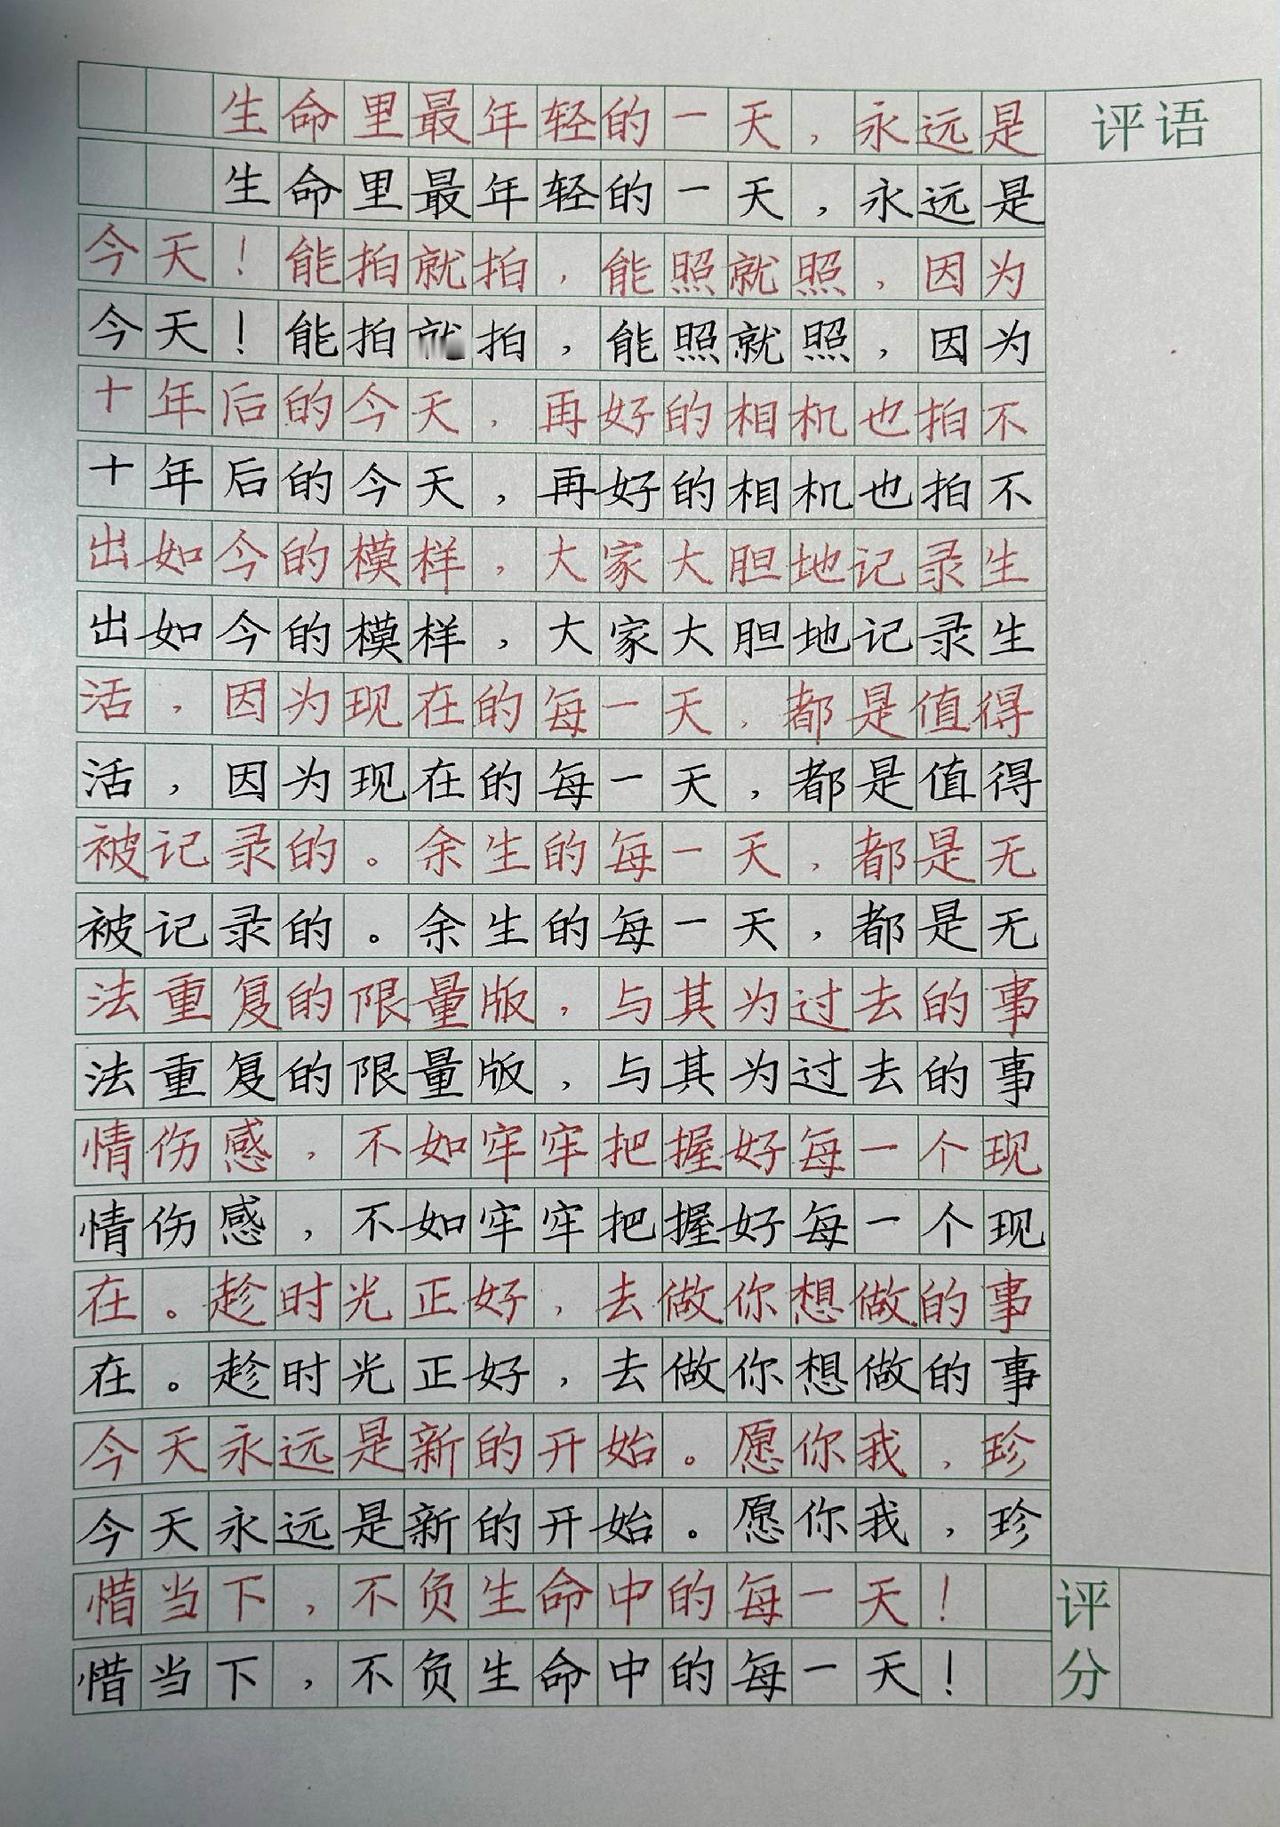 生命里最年轻的一天，永远是
评语
生命里最年轻的一天，永远是
今天！能拍就拍，能照就照，因为
今天！能拍就拍，能照就照，因为
十年后的今天，再好的相机也拍不
十年后的今天，再好的相机也拍不
出如今的模样，大家大胆地记录生
出如今的模样，大家大胆地记录生
活，因为现在的每一天，都是值得
活，因为现在的每一天，都是值得
被记录的。余生的每一天，都是无
被记录的。余生的每一天，都是无
法重复的限量版，与其为过去的事
法重复的限量版，与其为过去的事
情伤感，不如牢牢把握好每一个现
情伤感，不如牢牢把握好每一个现
在。趁时光正好，去做你想做的事
在。趁时光正好，去做你想做的事
今天永远是新的开始。愿你我，珍
今天永远是新的开始。愿你我，珍
惜当下，不负生命中的每一天！
惜当下，不负生命中的每一天！
评分